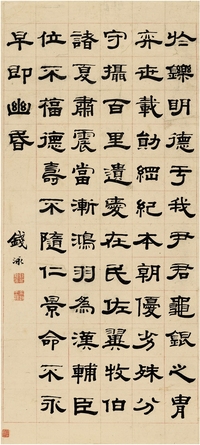 於鑠明德于我尹君龜銀之冑
弈世載勛綱紀本朝優劣殊分
守攝百里遺愛在民佐翼牧伯
諸夏肅震當漸鴻羽為漢輔臣
位不福德壽不隨仁景命不永
早即幽昏
錢泳